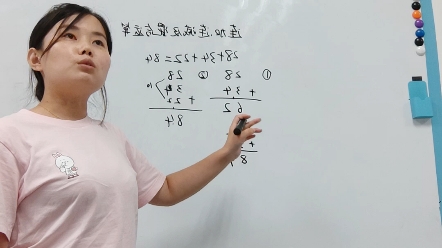 连加、连减及混合运算
28+34+22=84
① 28 ② 28
+ 34 34
62 + 22
84
+
8